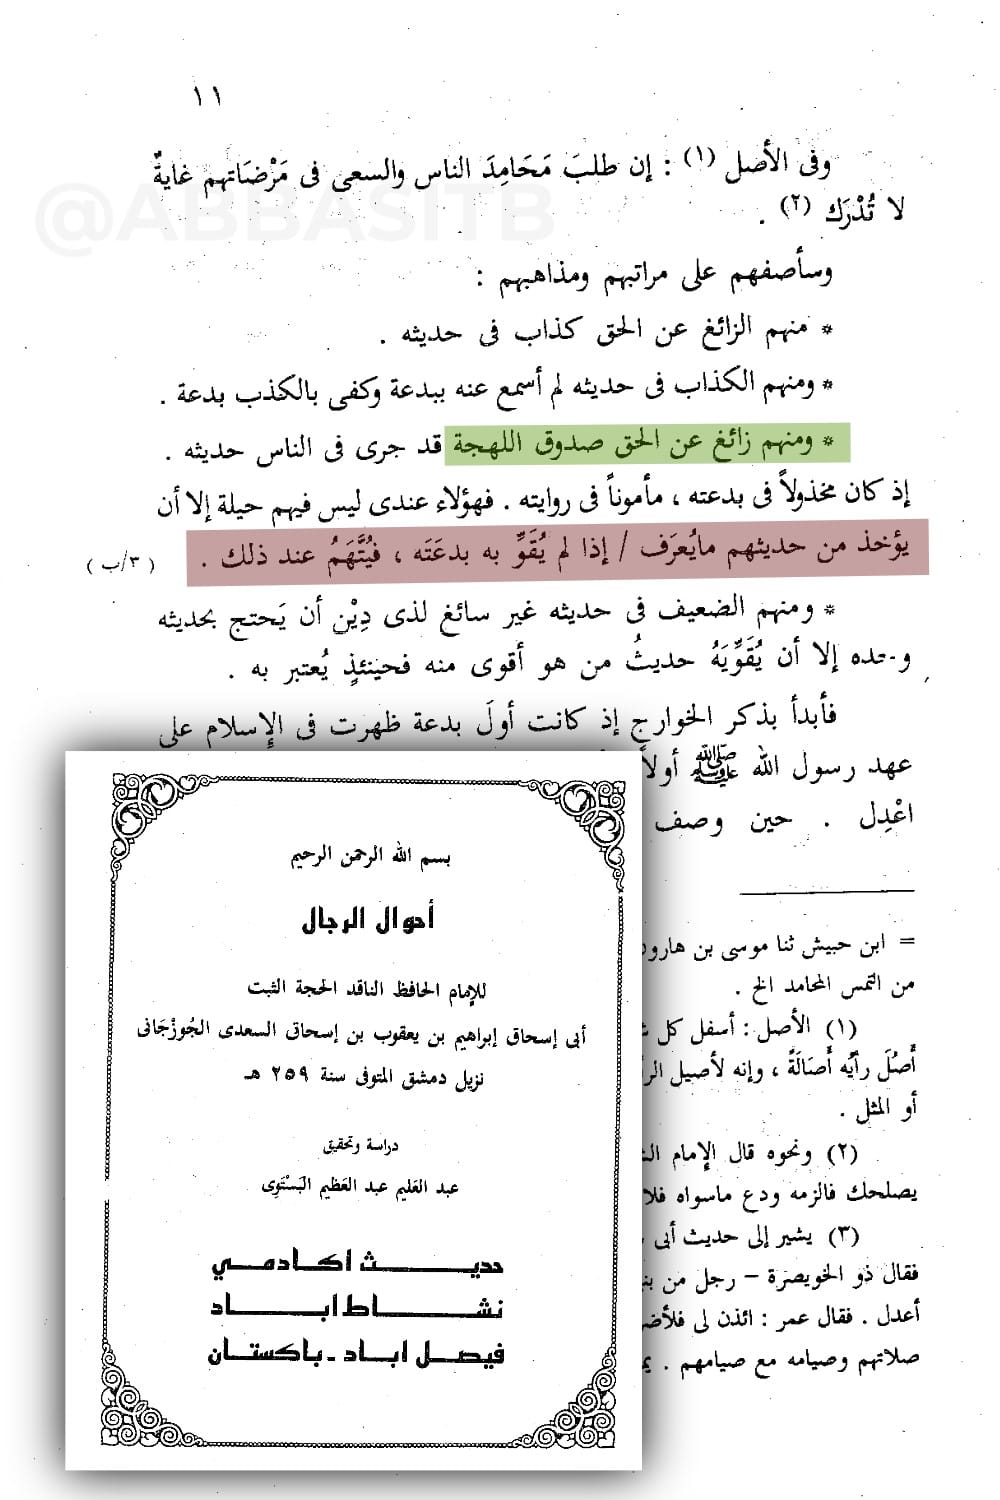 ١١
@ABBASITB
وفى الأصل (١) : إن طلبَ مَحَامِدَ الناس والسعى فى مَرْضَاتهم غايةٌ
لا تُدْرَك (٢) .
وسأصفهم على مراتبهم ومذاهبهم :
* منهم الزائغ عن الحق كذاب فى حديثه .
* ومنهم الكذاب فى حديثه لم أسمع عنه ببدعة وكفى بالكذب بدعة .
* ومنهم زائغ عن الحق صدوق اللهجة قد جرى فى الناس حديثه .
إذ كان مخذولاً فى بدعته ، مأموناً فى روايته . فهؤلاء عندى ليس فيهم حيلة إلا أن
يؤخذ من حديثهم مايُعرَف / إذا لم يُقَوِّ به بدعَتَه ، فيُتَّهَمُ عند ذلك . ( ٣/ب )
* ومنهم الضعيف فى حديثه غير سائغ لذى دِيْن أن يَحتج بحديثه
وحده إلا أن يُقَوِّيَهُ حديثُ من هو أقوى منه فحينئذٍ يُعتبر به .
فأبدأ بذكر الخوارج إذ كانت أولَ بدعة ظهرت فى الإسلام على
عهد رسول الله ﷺ أولا
اعْدِل . حين وصف
= ابن حبيش ثنا موسى بن هارون
من التمس المحامد الخ .
(١) الأصل : أسفل كل
أَصُلَ رأيُه أَصَالَةً ، وإنه لأصيل
أو المثل .
(٢) ونحوه قال الإمام
يصلحك فالزمه ودع ماسواه
(٣) يشير إلى حديث أبى
فقال ذو الخويصرة – رجل من
أعدل . فقال عمر : ائذن لى
صلاتهم وصيامه مع صيامهم .
بسم الله الرحمن الرحيم
أحوال الرجال
للإمام الحافظ الناقد الحجة الثبت
أبى إسحاق إبراهيم بن يعقوب بن إسحاق السعدى الجُوزْجَانى
نزيل دمشق المتوفى سنة ٢٥٩ هـ
دراسة وتحقيق
عبد العَليم عبد العَظيم البَسْتَوِى
حديث اكادمي
نشاط اباد
فيصل اباد - باكستان